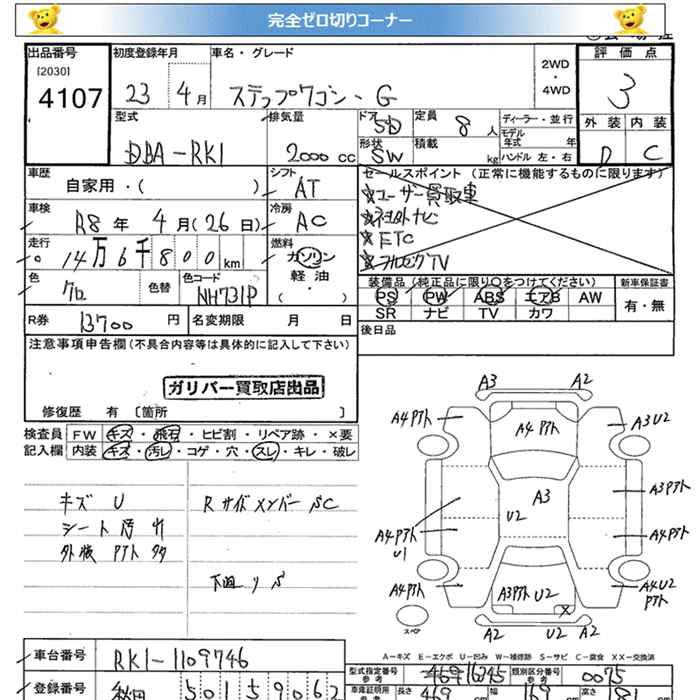 完全ゼロ切りコーナー
出品番号
[2030]
4107
初度登録年月
23 4月
車名・グレード
ステップワゴン・G
2WD
・
4WD
評価点
3
外装 内装
D C
型式
DBA-RK1
排気量
2000 cc
ドア
5D
形状
SW
定員
8 人
積載
kg
ディーラー・並行
モデル
年式 年
ハンドル 左・右
車歴
自家用・( )
シフト
AT
車検
R8 年 4月(26日)
冷房
AC
走行
14万6千800 km
燃料
ガソリン
軽油
・
( )
色
クロ
色替
色コード
NH731P
R券
13700 円
名変期限 月 日
セールスポイント (正常に機能するものに限ります)
★ユーザー買取車
ナビ
★ETC
★フルセグTV
装備品 (純正品に限り〇をつけてください)
PS PW ABS エアB AW
SR ナビ TV カワ
新車保証書
有・無
後日品
注意事項申告欄(不具合内容等は具体的に記入して下さい)
ガリバー買取店出品
修復歴 有 〔箇所 〕
検査員 FW キズ・飛石・ヒビ割・リペア跡・×要
記入欄 内装 キズ・汚レ・コゲ・穴・スレ・キレ・破レ
キズ U
シート汚れ
外板 Pアト 多
R サイドメンバー SC
下回り S
A3 A2
A4 Pアト
A4 Pアト
A3 U2
A3
U2
A3 Pアト
A4 Pアト
U1
A4 Pアト
A4 Pアト
A3 Pアト U2
A4 U2
Pアト
X
スペア
A2 U2 A2
A-キズ E-エクボ U-凹み W-補修跡 S-サビ C-腐食 XX-交換済
車台番号
RK1-1109746
型式指定番号
参考
16245
類別区分番号
参考
0075
登録番号
秋田 501 5 9062
車庫証明用
長さ 469
幅 169
高さ